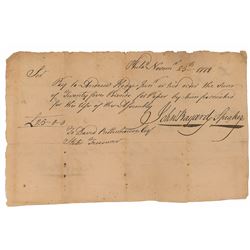 Philad. Novem. 25th 1778
Sir
Pay to Andrew Hodge Junr. or his order the Sum
of Twenty five Pounds for Paper by him purchased
for the Use of the Assembly
£25-0-0 John Bayard Speaker
To David Rittenhouse Esqr
State Treasurer